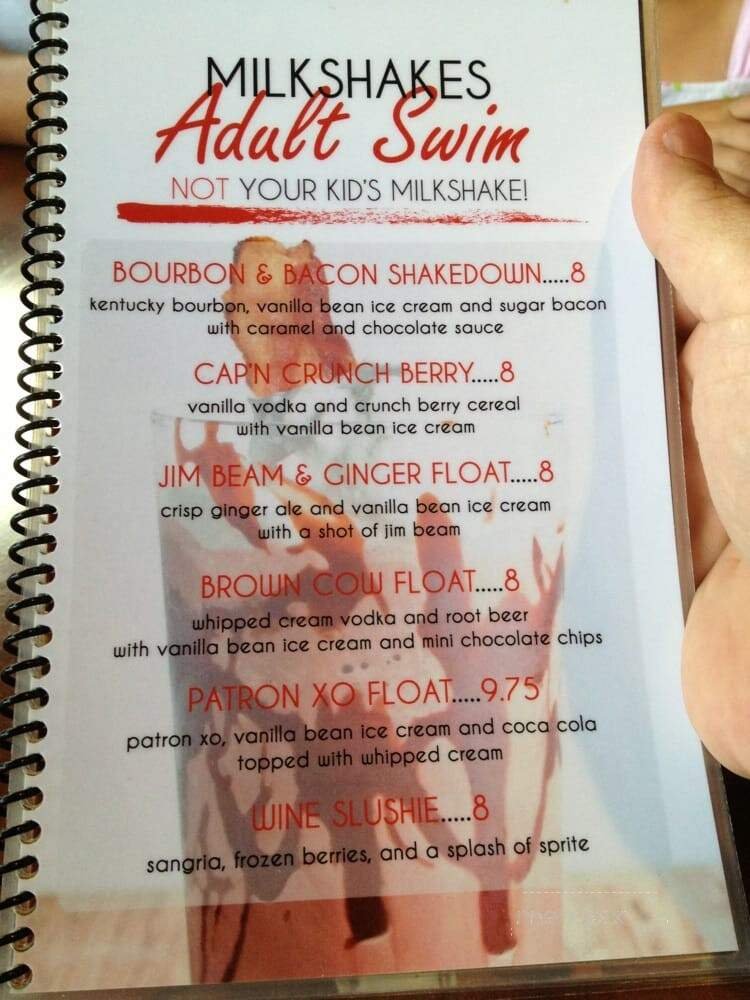 MILKSHAKES
Adult Swim
NOT YOUR KID'S MILKSHAKE!
BOURBON & BACON SHAKEDOWN.....8
kentucky bourbon, vanilla bean ice cream and sugar bacon
with caramel and chocolate sauce
CAP'N CRUNCH BERRY.....8
vanilla vodka and crunch berry cereal
with vanilla bean ice cream
JIM BEAM & GINGER FLOAT.....8
crisp ginger ale and vanilla bean ice cream
with a shot of jim beam
BROWN COW FLOAT.....8
whipped cream vodka and root beer
with vanilla bean ice cream and mini chocolate chips
PATRON XO FLOAT.....9.75
patron xo, vanilla bean ice cream and coca cola
topped with whipped cream
WINE SLUSHIE.....8
sangria, frozen berries, and a splash of sprite